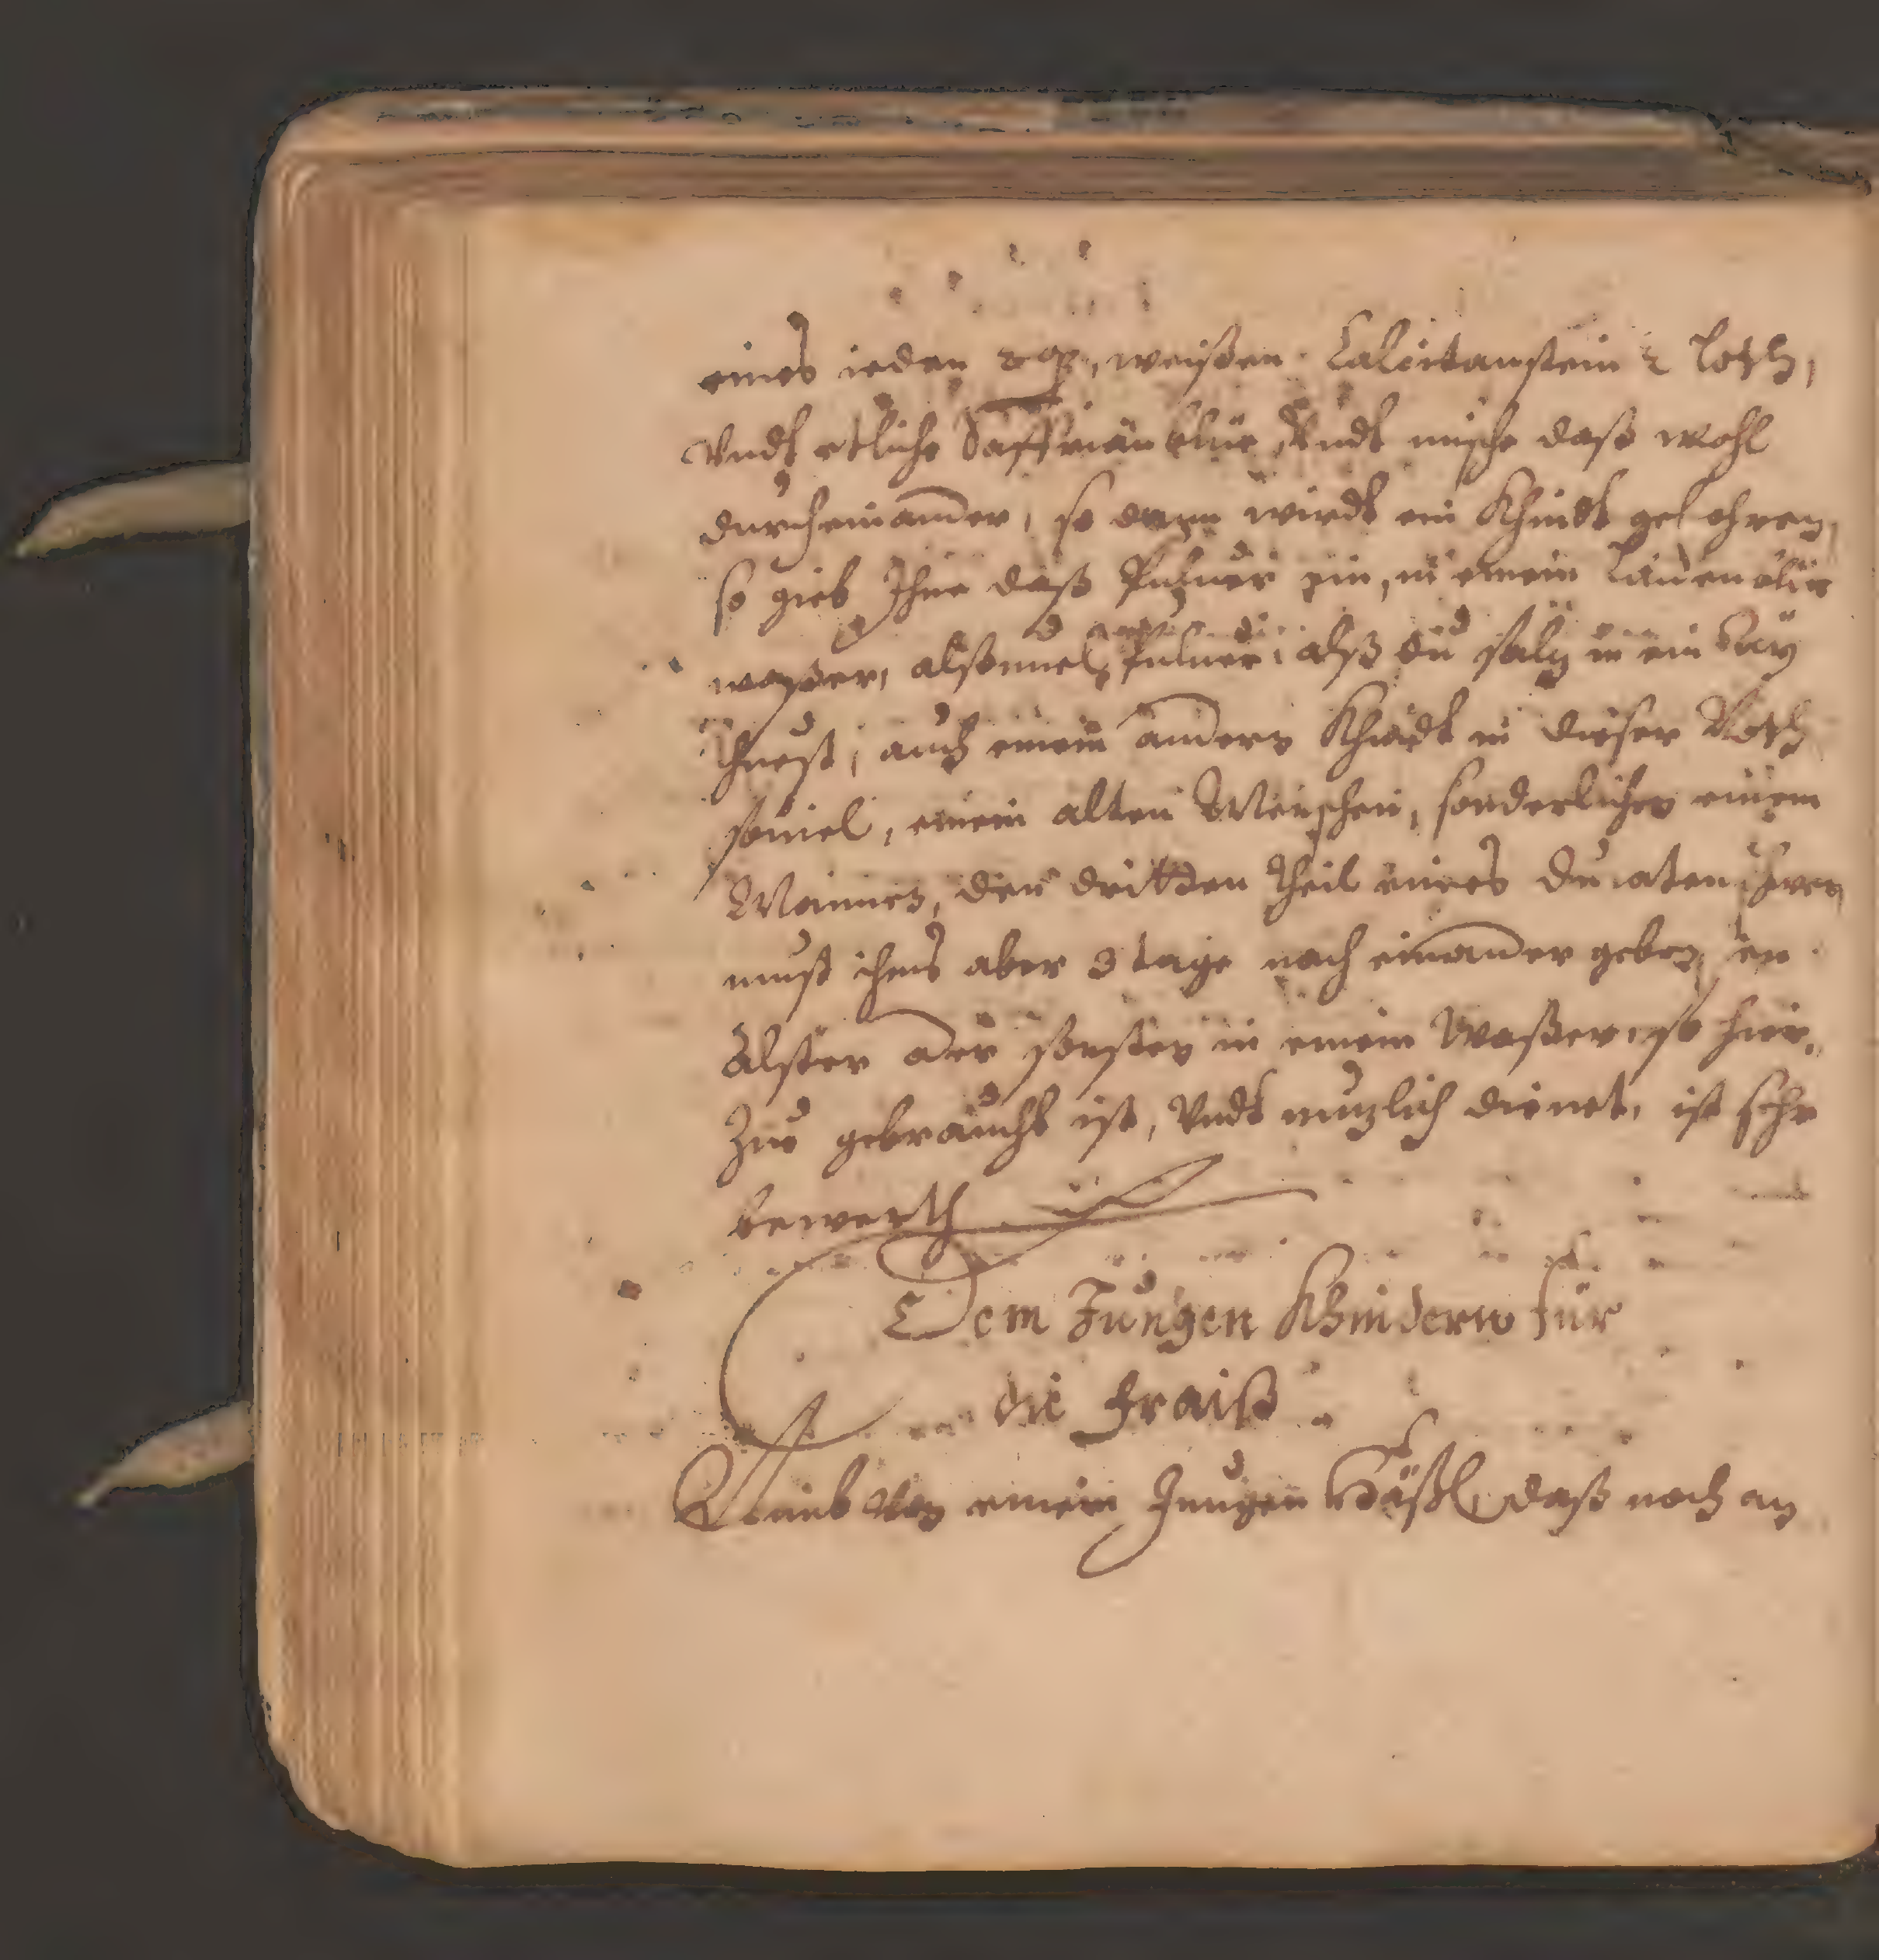 eines ieden weißen Calcitanstein 2 Loth,
Vndt etliche Saffrian blüe, Vndt mische daß wohl
durcheinander, so dann wirdt ein Khindt gebohren,
so gieb Ihme daß Puluer ein, in einem Lauenblüe
waßer, alßouiel Puluer, alß du saltz in ein Ay
thuest, auch einem andern Khindt in dieser Noth
souiel, einem alten Menschen, sonderlichen einem
Mannes, den dritten Theil eines Ducaten
must ihms aber 3 tage nach einander geben, in
Alster oder sonsten in einem Waßer, so hier
Zue gebraucht ist, Vndt nuzlich dienet, ist sehr
bewerth
Dem Jungen Khindern für
die Fraiß
Laub von einem Jungen Häßl, daß noch an